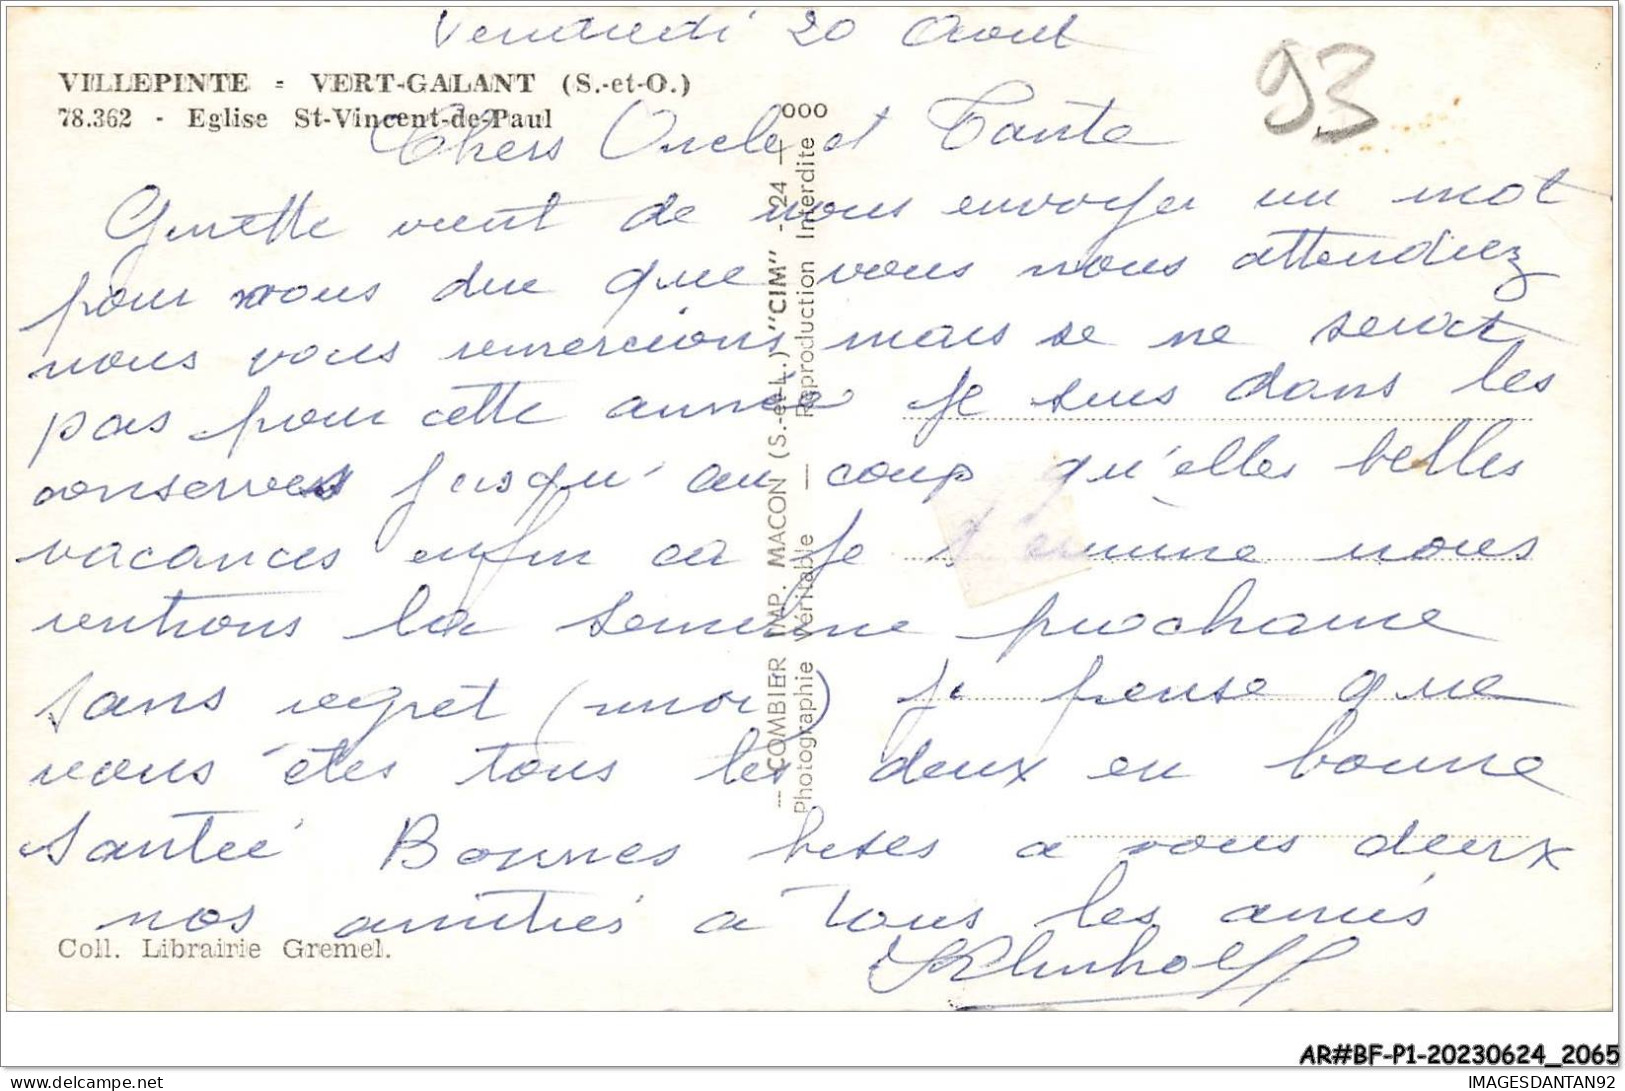 Vendredi 20 Aout
93
VILLEPINTE = VERT-GALANT (S.-et-O.)
78.362 - Eglise St-Vincent-de-Paul
Chers Oncle et Tante
Ginette vient de nous envoyer un mot
pour nous dire que vous nous attendiez
nous vous remercions mais se ne serait
pas pour cette année je suis dans les
conserves jusqu'au coup qu'elles belles
vacances enfin ca je termine nous
rentrons la semaine prochaine
sans regret (moi) je pense que
vous êtes tous les deux en bonne
santée Bonnes bises a vous deux
nos amitiés a tous les amis
Coll. Librairie Gremel.
— COMBIER IMP. MACON (S.-et-L.) "CIM" - 24 — ooo
Photographie Véritable — Reproduction Interdite
AR#BF-P1-20230624_2065
IMAGESDANTAN92